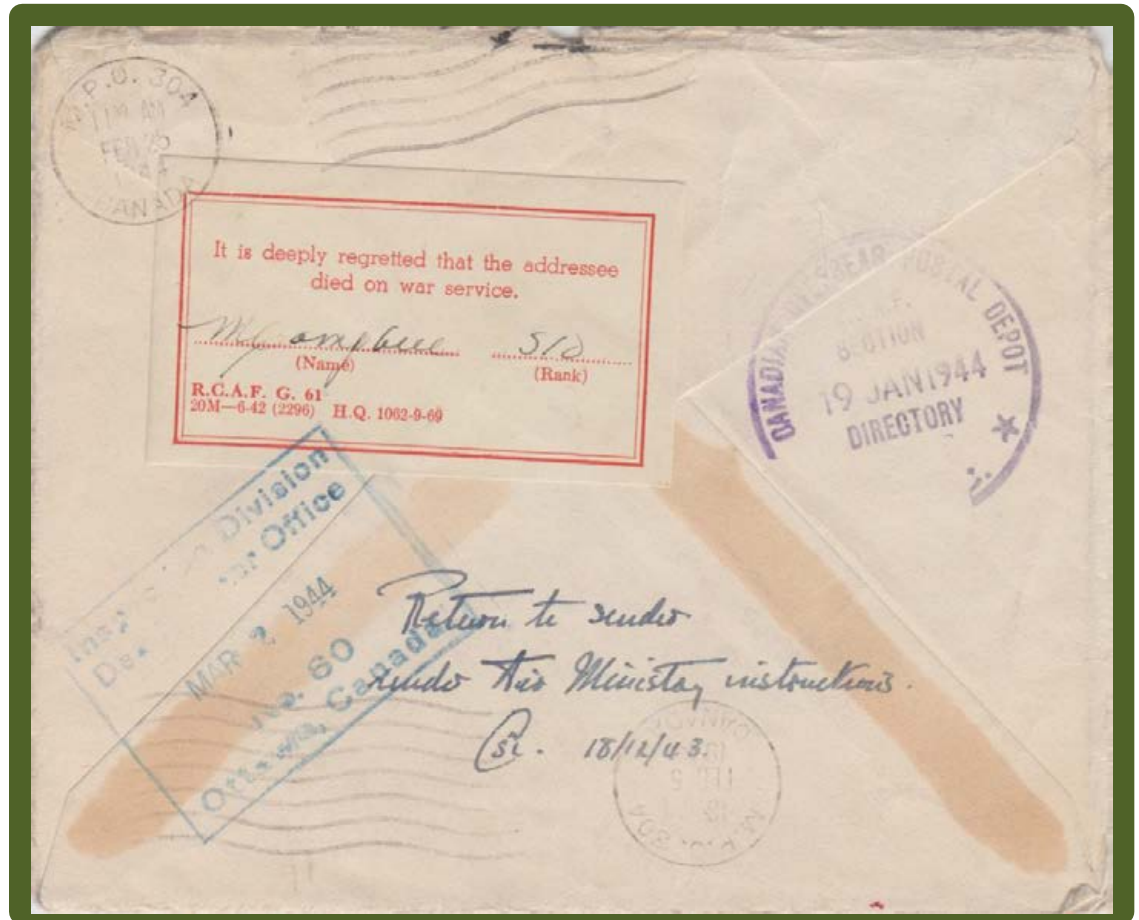 M.P.O. 304
AM
FEB 25
CANADA
It is deeply regretted that the addressee
died on war service.
(Name) (Rank)
R.C.A.F. G. 61
20M—6-42 (2296) H.Q. 1062-9-69
CANADIAN OVERSEAS POSTAL DEPOT
SECTION
19 JAN 1944
DIRECTORY
Division
Office
MAR 2 1944
No. 60
Ottawa, Canada
Return to sender
under Air Ministry instructions.
18/12/43.
CANADA
FEB
M.P.O. 304